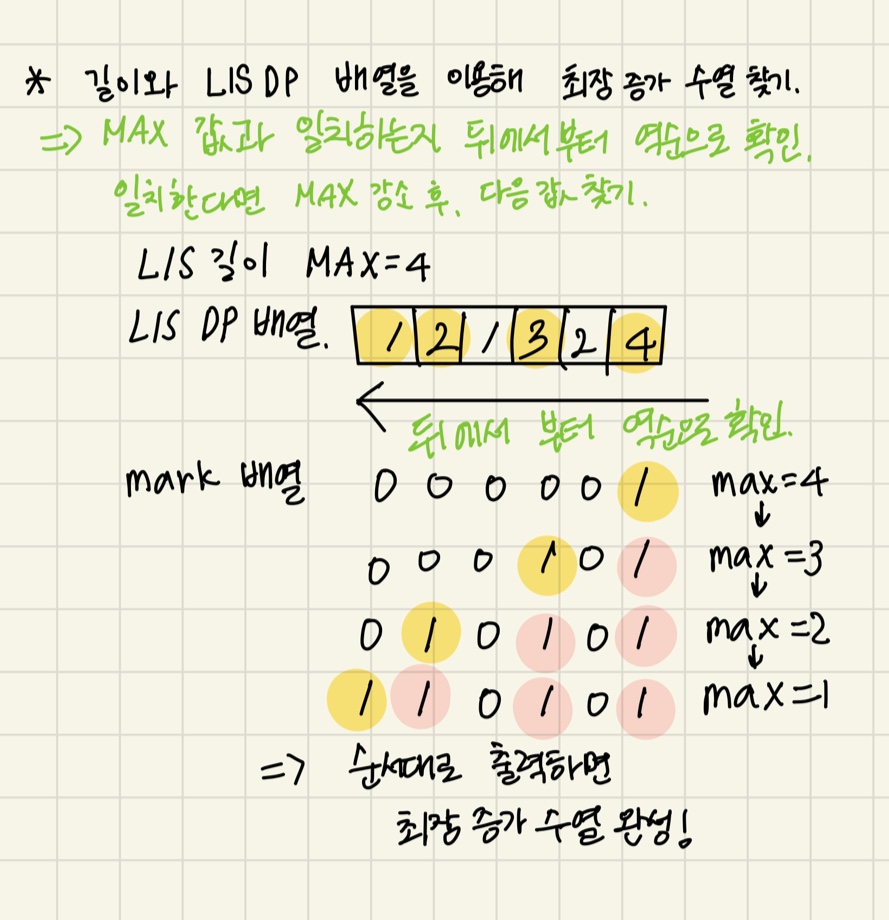 * 길이와 LIS DP 배열을 이용해 최장 증가 수열 찾기.
=> MAX 값과 일치하는지 뒤에서부터 역순으로 확인.
일치한다면 MAX 감소 후, 다음 값 찾기.
LIS 길이 MAX=4
LIS DP 배열. 1 2 1 3 2 4
뒤에서 부터 역순으로 확인.
mark 배열 0 0 0 0 0 1 max=4
0 0 0 1 0 1 max=3
0 1 0 1 0 1 max=2
1 1 0 1 0 1 max=1
=> 순서대로 출력하면
최장 증가 수열 완성!